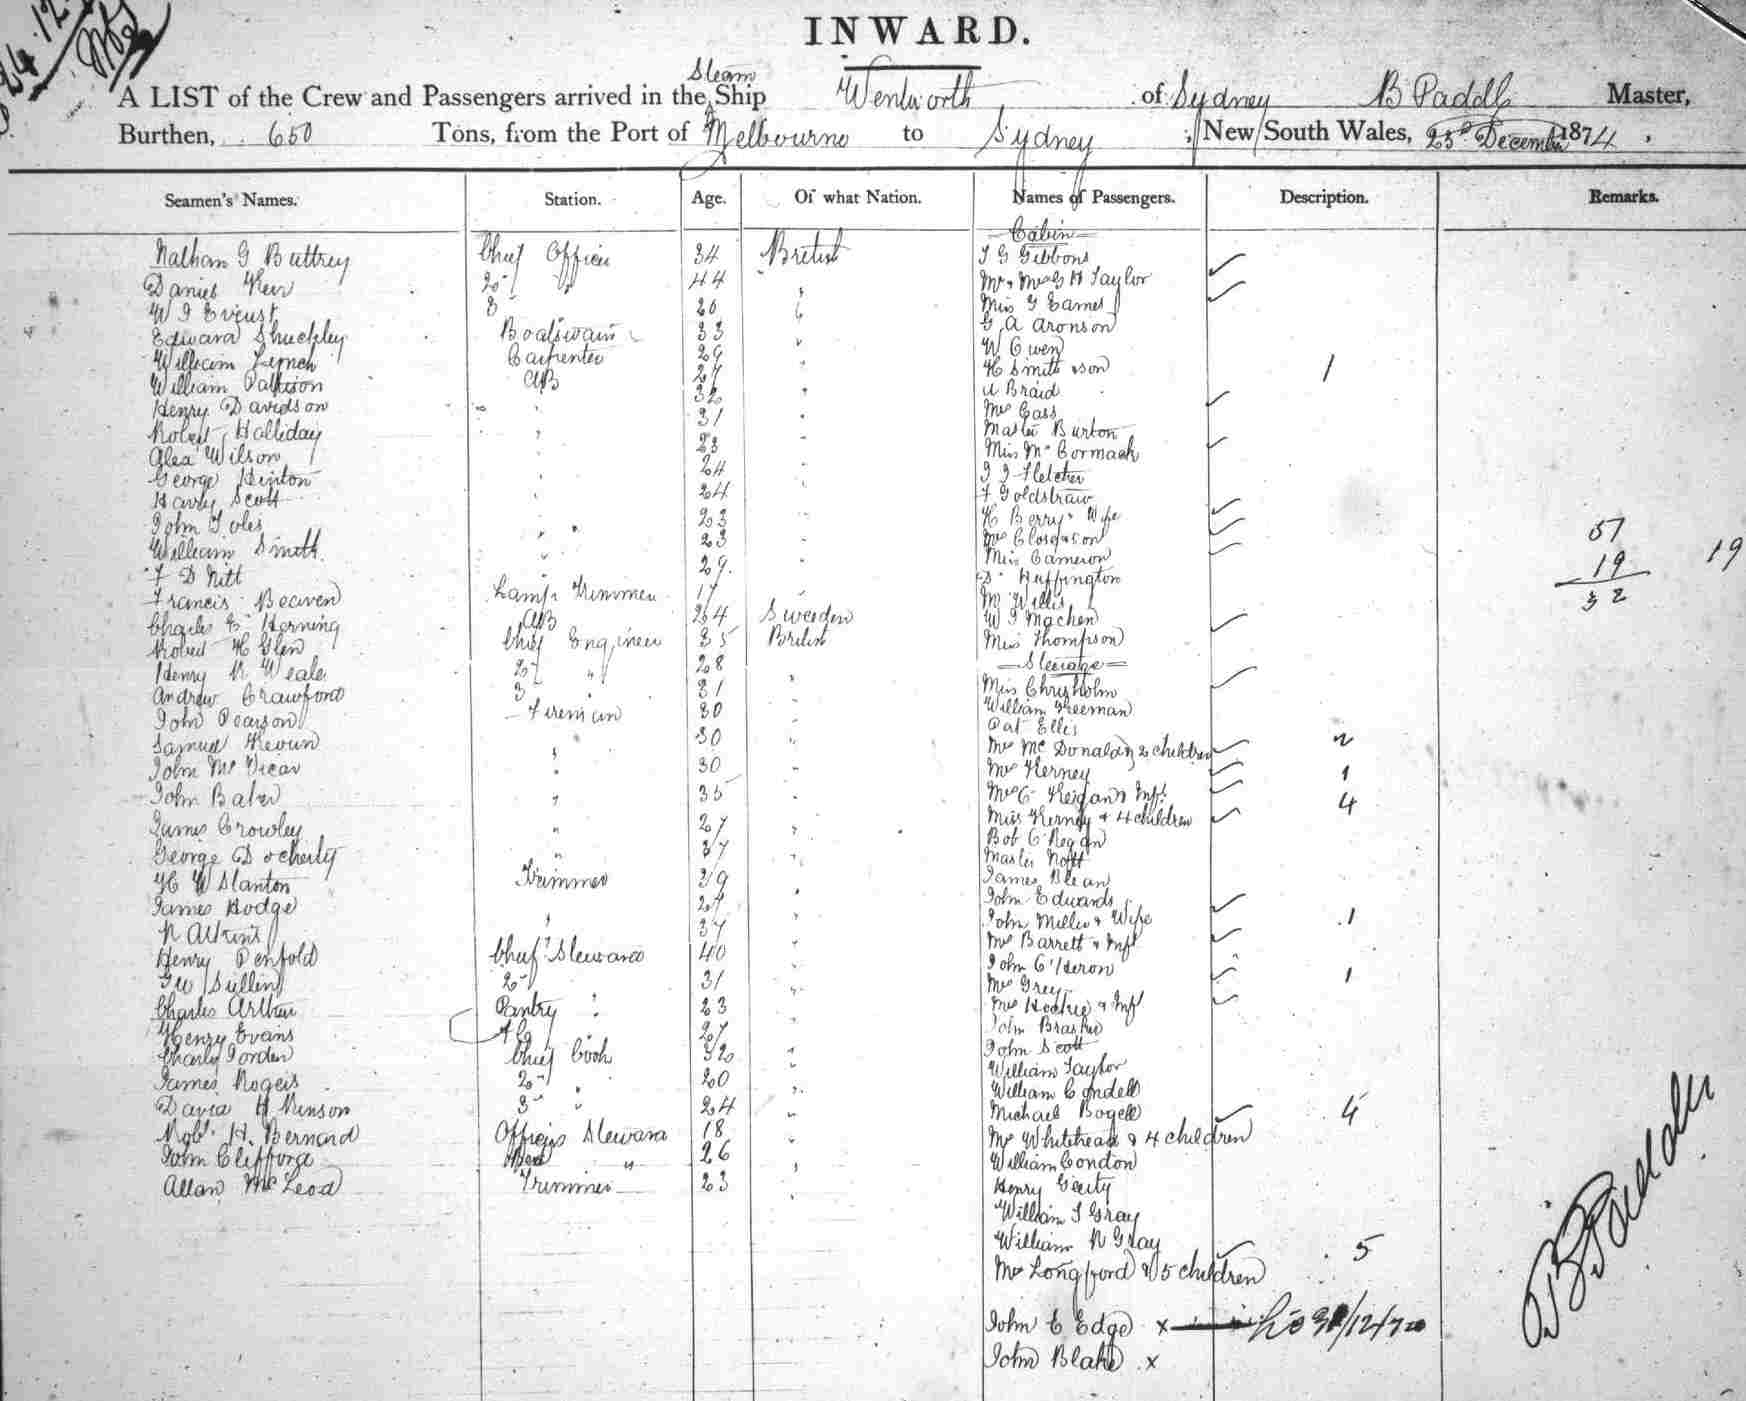 24.12.
INWARD.
Steam
A LIST of the Crew and Passengers arrived in the Ship Wentworth of Sydney B Paddle Master,
Burthen, 650 Tons, from the Port of Melbourne to Sydney, New South Wales, 23d December 1874,
Seamen's Names. Station. Age. Of what Nation. Names of Passengers. Description. Remarks.
Cabin
Nathan G Buttrey Chief Officer 34 British
Daniel Keir 2d " 44 "
W J 3 " 26 "
Edward Shuckley Boatswain 33 "
William Lynch Carpenter 29 "
William Pattison AB 27 "
Henry Davidson " 32 "
Robert Halliday " 31 "
Alex Wilson " 23 "
George Hinton " 24 "
Harry Scott " 24 "
John Toles " 23 "
William Smith " 23 "
F D Nitt " 29 "
Francis Beaven Lamp Trimmer 17 "
Charles E Horning AB 24 Sweeden
Robert H Glen Chief Engineer 35 British
Henry R Weale 2d " 28 "
Andrew Crawford 3 " 31 "
John Pearson Fireman 30 "
Samuel " 30 "
John McVicar " 30 "
John Baker " 35 "
James Crowley " 27 "
George Docherty " 37 "
H W Stanton Trimmer 29 "
James Hodge 27 "
R Atkins " 37 "
Henry Penfold Chief Steward 40 "
G W Sullin 2d 31 "
Charles Arthur Pantry " 23 "
Henry Evans 27 "
Charly Jorden Chief Cook 32 "
James Rogers 2d " 20 "
David H Ninson 3 " 24 "
Robt. H. Bernard Officers Steward 18 "
John Clifford " 26 "
Allan McLeod Trimmer 23 "
T G Gibbons
Mr & Mrs G H Taylor
Miss G Eames
G A Aronson
W Owen
H Smith & son 1
A Braid
Mrs Cass
Master Burton
Miss McCormack
J J Fletcher
F Goldstraw
H Berry & Wife
Mrs Close & son
Miss Cameron
D Huffington
Mr Willis
W J Machen
Miss Thompson
Steerage
Miss Chrisholm
William Freeman
Pat Ellis
Mrs McDonald & 2 children 2
Mrs Kerney 1
Mrs O'Reigan & Inft.
Miss Kerney & 4 children 4
Bob O'Regan
Master Nott
James Blean
John Edwards
John Miller & Wife
Mrs Barrett & Inft 1
John O'Heron
Mrs Grey
Mrs & Inft 1
John Brasher
John Scott
William Taylor
William Condell
Michael Bogell
Mrs Whitehead & 4 children 4
William Condon
Henry Geity
William T Gray
William R Gray
Mrs Longford & 5 children 5
John C Edge x
John Blake x
51
19
32
19
B Paddle